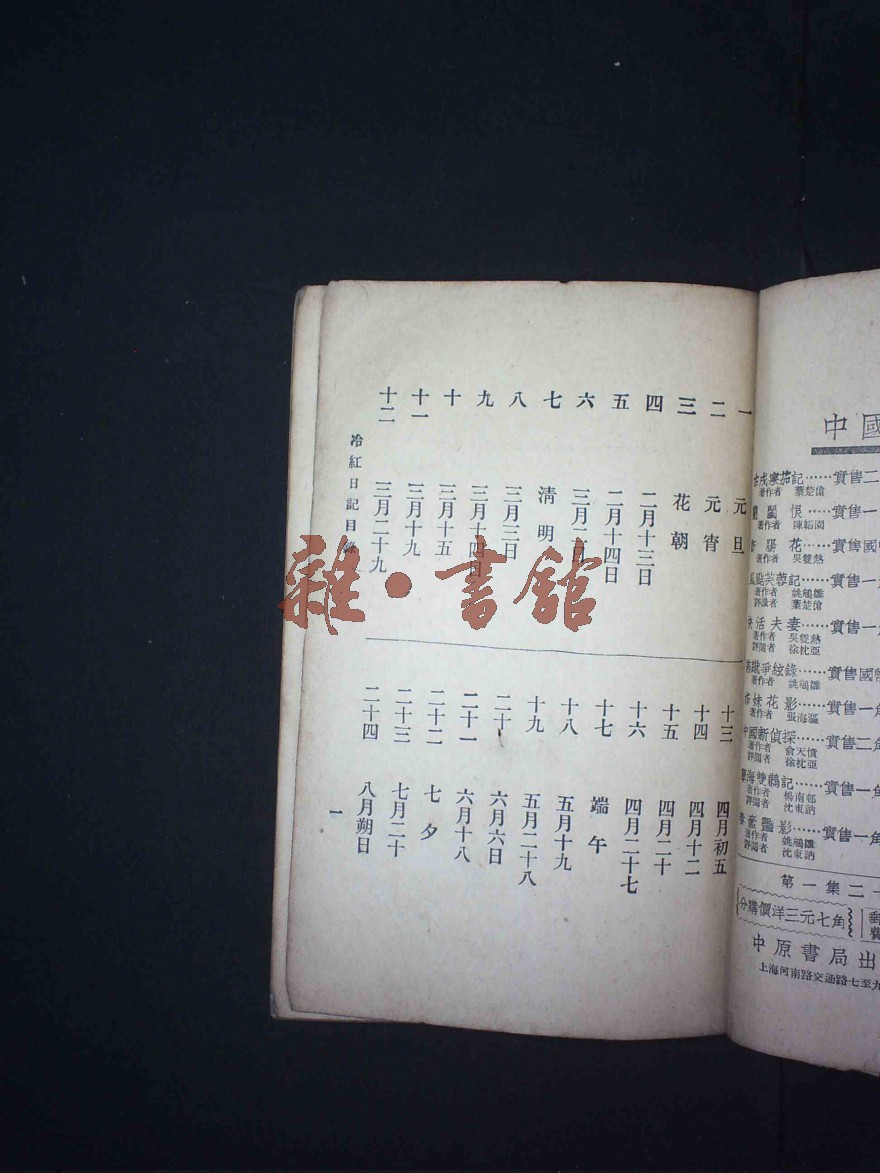 一　元旦
二　元宵
三　花朝
四　二月十三日
五　二月十四日
六　三月二日
七　清明
八　三月三日
九　三月十四日
十　三月十五
十一　三月十九
十二　三月二十九
十三　四月初五
十四　四月十二
十五　四月二十
十六　四月二十七
十七　端午
十八　五月十九
十九　五月二十八
二十　六月六日
二十一　六月十八
二十二　七夕
二十三　七月二十
二十四　八月朔日
冷紅日記目錄
一
雜·書館
中國
記……實售二
著作者　葉楚傖
恨……實售一
著作者　陳韜園
花……實售國
著作者　吳雙熱
芙蓉記……實售一
著作者　姚鵷雛
評議者　葉楚傖
快活夫妻……實售一角
著作者　吳雙熱
評閱者　徐枕亞
爭絃錄……實售國幣
著作者　姚鵷雛
姊妹花影……實售一角
著作者　張海漚
中國新偵探……實售二角
著作者　俞天憤
評閱者　徐枕亞
海雙鶼記……實售一角
著作者　楊南邨
評閱者　沈東訥
春奩豔影……實售一角
著作者　姚鵷雛
評閱者　沈東訥
第一集二十
分購價洋三元七角
郵費
中原書局出
上海河南路交通路七至九